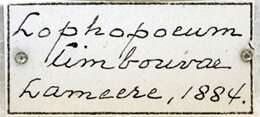 Lophopoeum
timbouvae
Lameere, 1884.